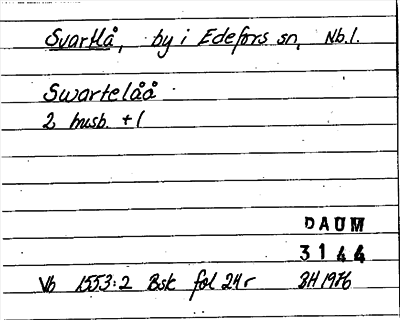 Svartlå, by i Edefors sn, Nb.l.
Swartelåå
2 husb. +1
DAUM
3144
Vb 1553:2 Bsk fol 24r BH 1976